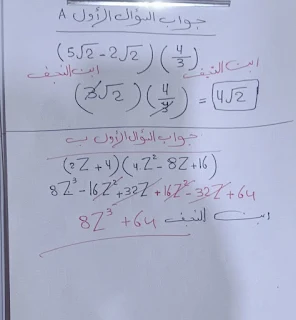 جواب السؤال الأول A
(5√2 - 2√2) (4/3)
ابن النجف ابن النجف
(3√2) (4/3) = 4√2
جواب السؤال الأول ب
(2Z + 4) (4Z² - 8Z + 16)
8Z³ - 16Z² + 32Z + 16Z² - 32Z + 64
8Z³ + 64 ابن النجف